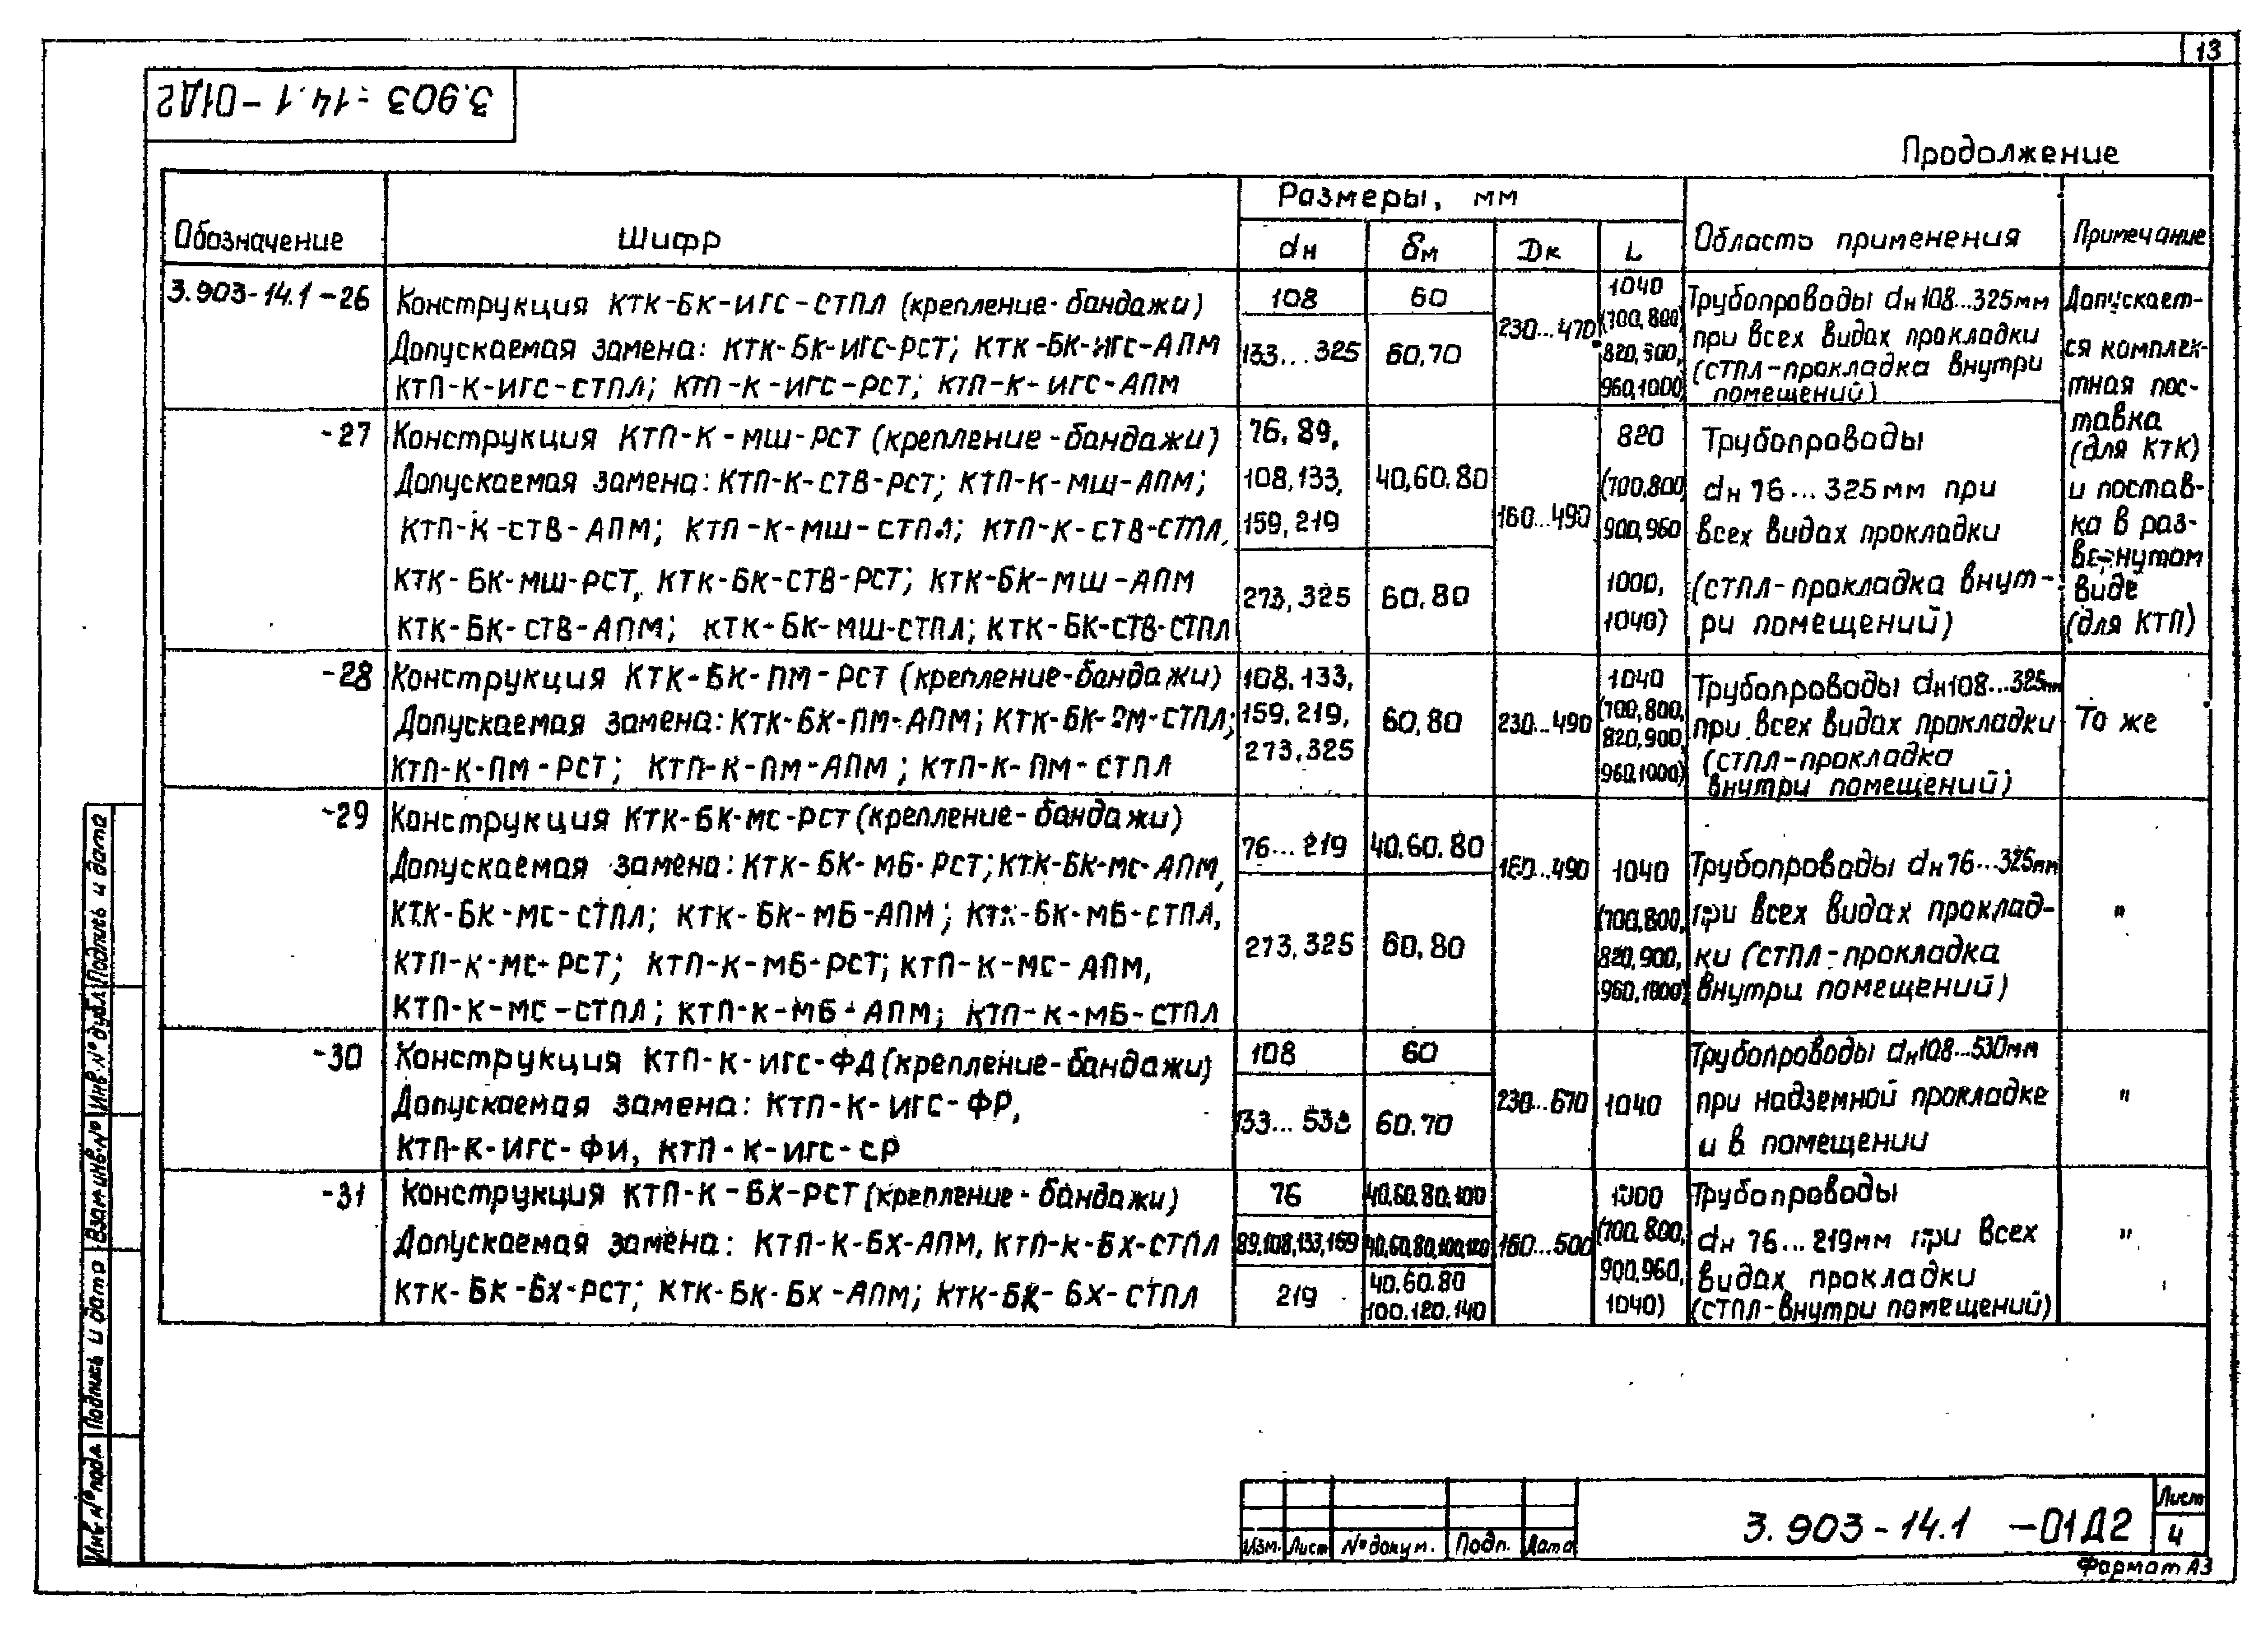 13
3.903-14.1-01Д2
Продолжение
Обозначение
Шифр
Размеры, мм
dн
δм
Dк
L
Область применения
Примечание
3.903-14.1-26
Конструкция КТК-БК-ИГС-СТПЛ (крепление-бандажи)
Допускаемая замена: КТК-БК-ИГС-РСТ; КТК-БК-ИГС-АПМ
КТП-К-ИГС-СТПЛ; КТП-К-ИГС-РСТ; КТП-К-ИГС-АПМ
108
60
133...325
60,70
230...470
1040
(700,800,
820,900,
960,1000)
Трубопроводы dн 108...325мм
при всех видах прокладки
(СТПЛ-прокладка внутри
помещений)
Допускает-
ся комплек-
тная пос-
тавка
(для КТК)
и постав-
ка в раз-
вернутом
виде
(для КТП)
-27
Конструкция КТП-К-МШ-РСТ (крепление-бандажи)
Допускаемая замена: КТП-К-СТВ-РСТ; КТП-К-МШ-АПМ;
КТП-К-СТВ-АПМ; КТП-К-МШ-СТПЛ; КТП-К-СТВ-СТПЛ,
КТК-БК-МШ-РСТ, КТК-БК-СТВ-РСТ; КТК-БК-МШ-АПМ
КТК-БК-СТВ-АПМ; КТК-БК-МШ-СТПЛ; КТК-БК-СТВ-СТПЛ
76, 89,
108,133,
159,219
40,60,80
273,325
60,80
160...490
820
(700,800
900,960
1000,
1040)
Трубопроводы
dн 76...325мм при
всех видах прокладки
(СТПЛ-прокладка внут-
ри помещений)
-28
Конструкция КТК-БК-ПМ-РСТ (крепление-бандажи)
Допускаемая замена: КТК-БК-ПМ-АПМ; КТК-БК-ПМ-СТПЛ;
КТП-К-ПМ-РСТ; КТП-К-ПМ-АПМ; КТП-К-ПМ-СТПЛ
108,133,
159,219,
273,325
60,80
230...490
1040
(700,800,
820,900,
960,1000)
Трубопроводы dн108...325мм
при всех видах прокладки
(СТПЛ-прокладка
внутри помещений)
То же
-29
Конструкция КТК-БК-МС-РСТ (крепление-бандажи)
Допускаемая замена: КТК-БК-МБ-РСТ; КТК-БК-МС-АПМ,
КТК-БК-МС-СТПЛ; КТК-БК-МБ-АПМ; КТК-БК-МБ-СТПЛ,
КТП-К-МС-РСТ; КТП-К-МБ-РСТ; КТП-К-МС-АПМ,
КТП-К-МС-СТПЛ; КТП-К-МБ-АПМ; КТП-К-МБ-СТПЛ
76...219
40.60.80
273,325
60,80
160...490
1040
(700,800,
820,900,
960,1000)
Трубопроводы dн 76...325мм
при всех видах проклад-
ки (СТПЛ-прокладка
внутри помещений)
"
-30
Конструкция КТП-К-ИГС-ФД (крепление-бандажи)
Допускаемая замена: КТП-К-ИГС-ФР,
КТП-К-ИГС-ФИ, КТП-К-ИГС-СР
108
60
133...530
60.70
230...670
1040
Трубопроводы dн108...530мм
при надземной прокладке
и в помещении
"
-31
Конструкция КТП-К-БХ-РСТ (крепление-бандажи)
Допускаемая замена: КТП-К-БХ-АПМ, КТП-К-БХ-СТПЛ
КТК-БК-БХ-РСТ; КТК-БК-БХ-АПМ; КТК-БК-БХ-СТПЛ
76
40.60.80.100
89,108,133,159
40,60,80,100,120
219
40.60.80
100.120.140
160...500
1000
(700,800,
900,960,
1040)
Трубопроводы
dн 76...219мм при всех
видах прокладки
(СТПЛ-внутри помещений)
"
Инв. № подл.
Подпись и дата
Взам инв. №
Инв. № дубл.
Подпись и дата
Изм.
Лист
№ докум.
Подп.
Дата
3.903-14.1 -01Д2
Лист
4
Формат А3